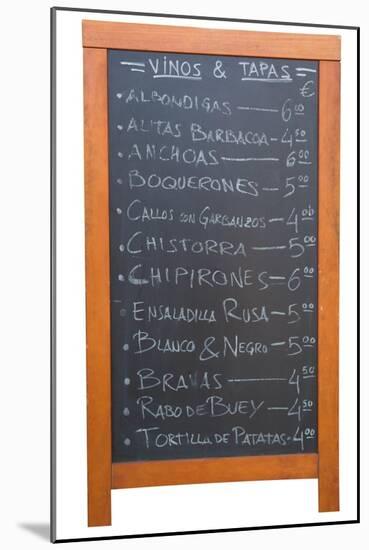 = VINOS & TAPAS =
€
• ALBONDIGAS — 6.00
• ALITAS BARBACOA - 4.50
• ANCHOAS — 6.00
• BOQUERONES - 5.00
• CALLOS CON GARBANZOS - 4.00
• CHISTORRA — 5.00
• CHIPIRONES - 6.00
• ENSALADILLA RUSA - 5.00
• BLANCO & NEGRO - 5.00
• BRAVAS — 4.50
• RABO DE BUEY - 4.50
• TORTILLA DE PATATAS - 4.00